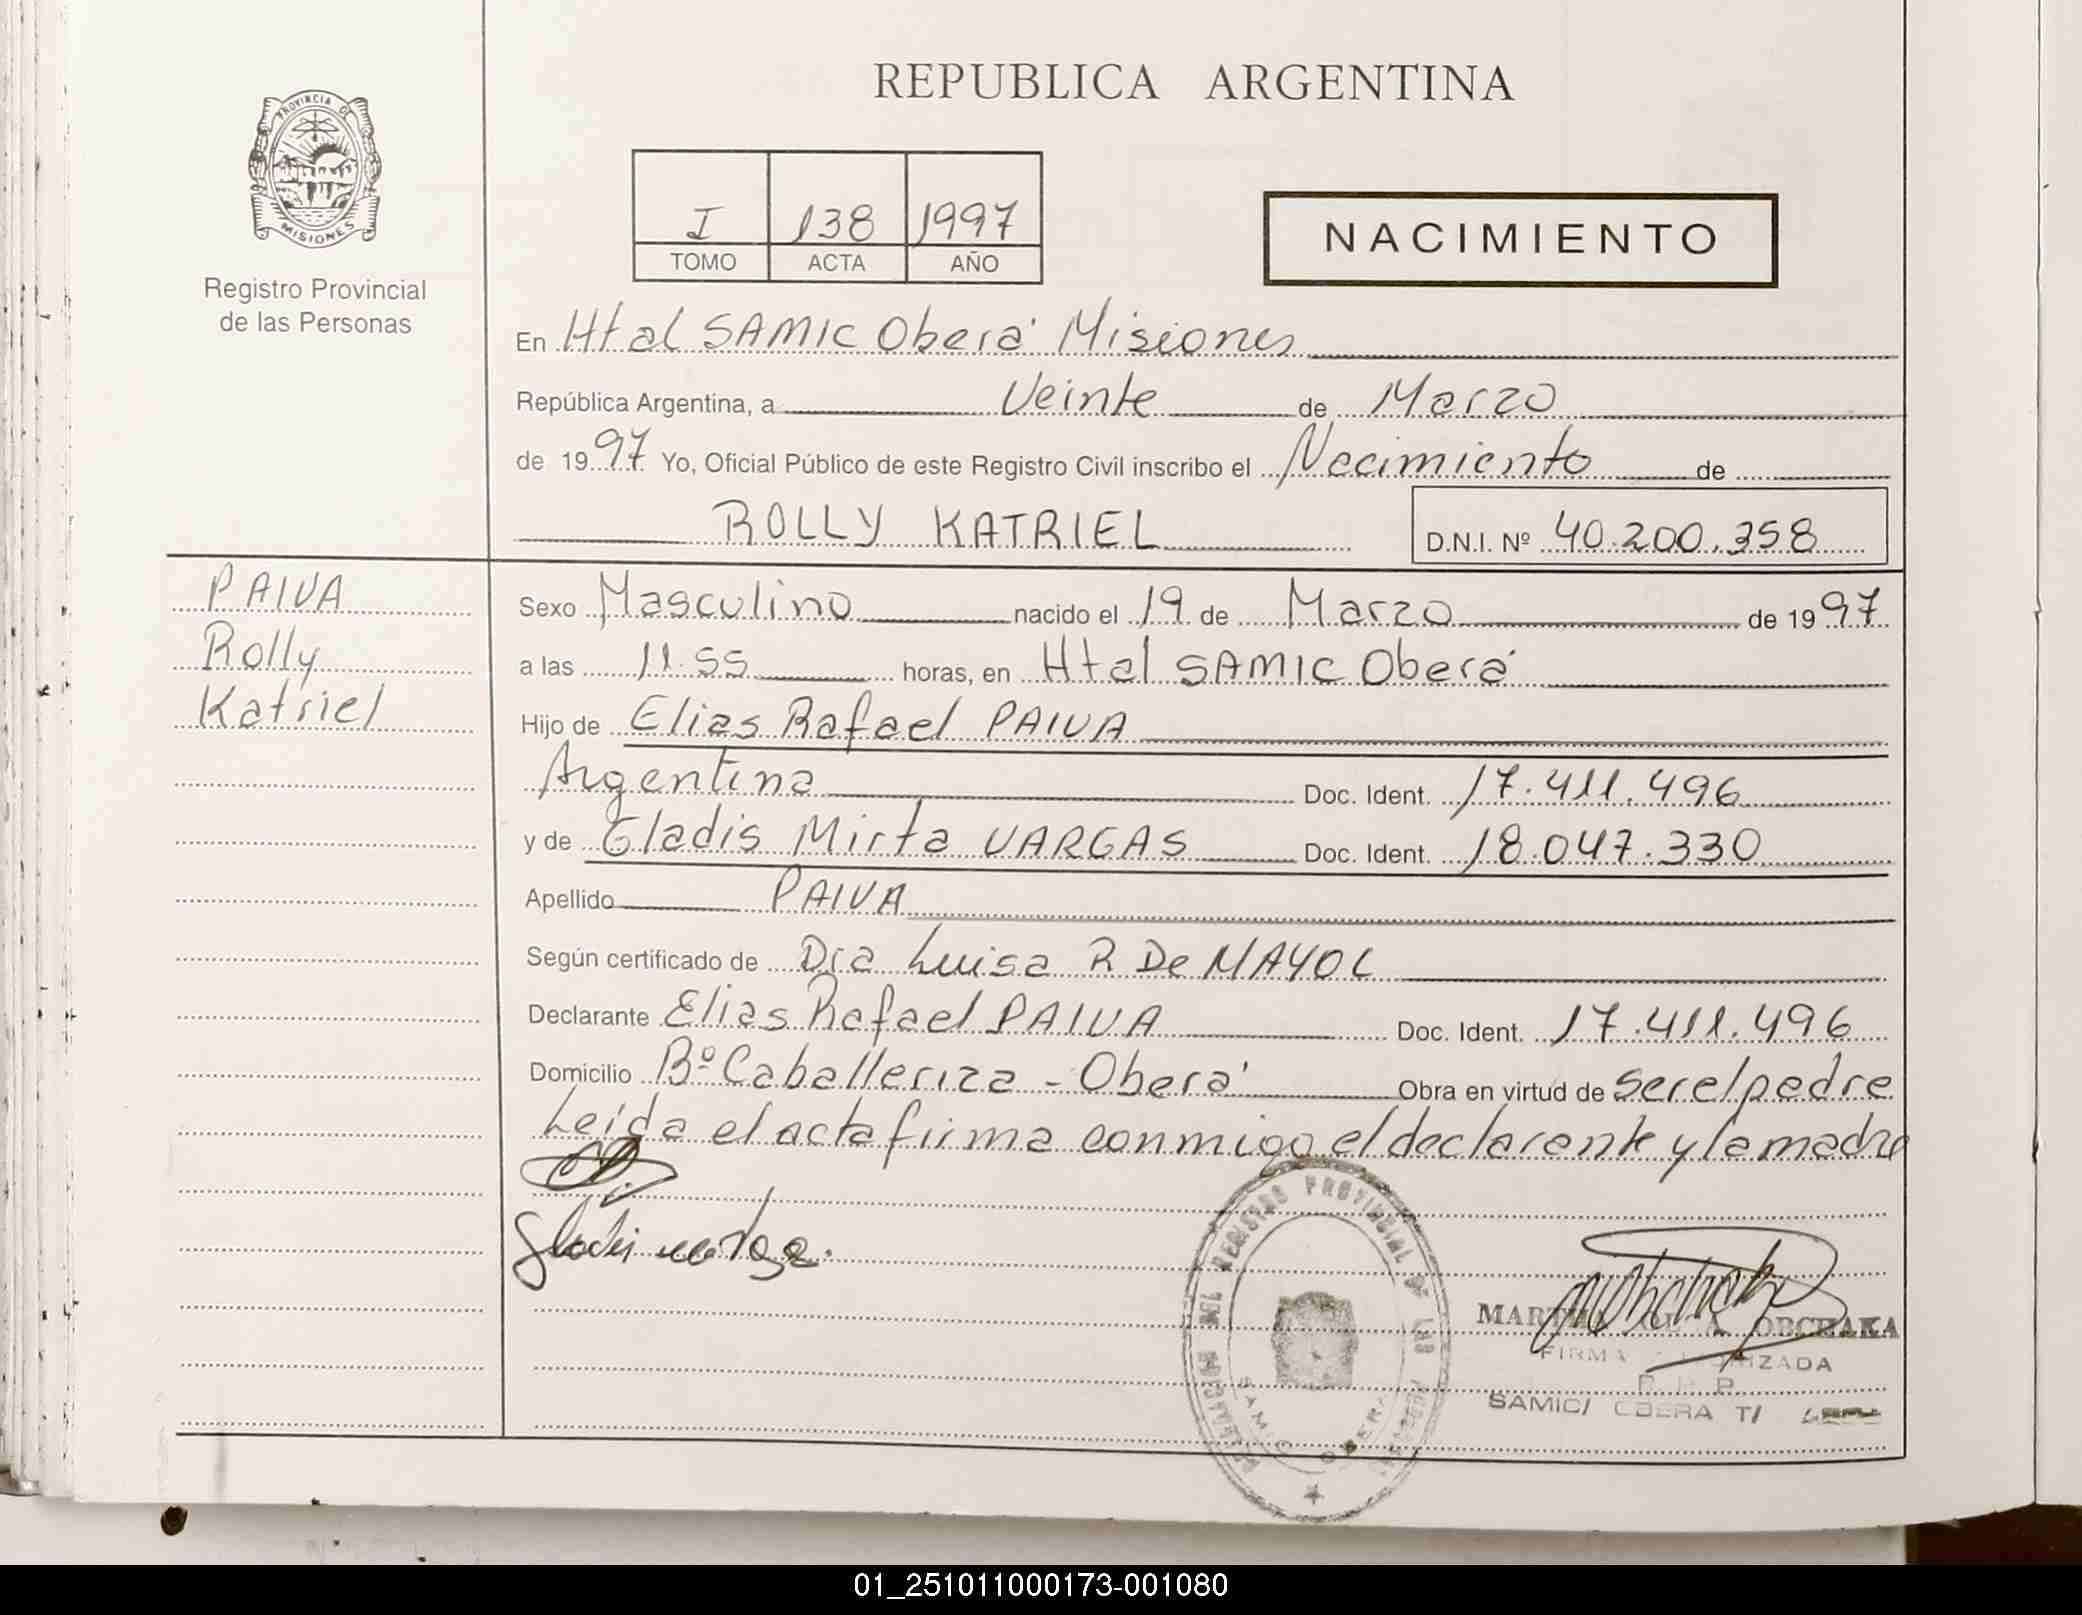 REPUBLICA ARGENTINA
PROVINCIA DE
MISIONES
Registro Provincial
de las Personas
I 138 1997
TOMO ACTA AÑO
NACIMIENTO
En Htal SAMIC Oberá Misiones
República Argentina, a Veinte de Marzo
de 1997 Yo, Oficial Público de este Registro Civil inscribo el Nacimiento de
ROLLY KATRIEL D.N.I. Nº 40.200.358
PAIVA
Rolly
Katriel
Sexo Masculino nacido el 19 de Marzo de 1997
a las 11.55 horas, en Htal SAMIC Oberá
Hijo de Elias Rafael PAIVA
Argentina Doc. Ident. 17.411.496
y de Gladis Mirta VARGAS Doc. Ident. 18.047.330
Apellido PAIVA
Según certificado de Dra Luisa R De MAYOL
Declarante Elias Rafael PAIVA Doc. Ident. 17.411.496
Domicilio Bº Caballeriza - Oberá Obra en virtud de ser el padre
Leída el acta firma conmigo el declarante y la madre
REGISTRO PROVINCIAL DE LAS
SAMIC OBERA
OBCHAKA
SAMIC/ OBERA T/
01_251011000173-001080